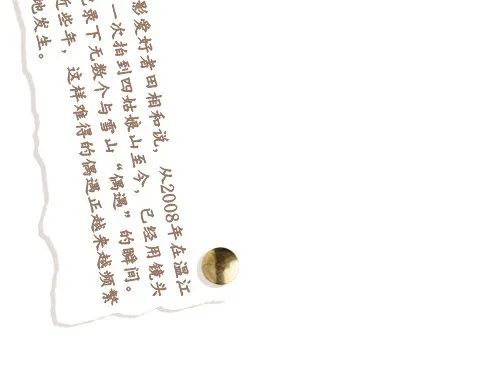 影爱好者田相和说，从2008年在温江
一次拍到四姑娘山至今，已经用镜头
录下无数个与雪山“偶遇”的瞬间。
近些年，这样难得的偶遇正越来越频繁
地发生。